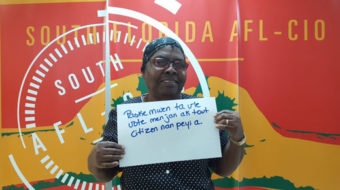 SOUTH FLORIDA AFL-CIO
SOUTH
AFL-
Paske mwen ta vle
vote menjan ak tout
citizen nan peyi a.